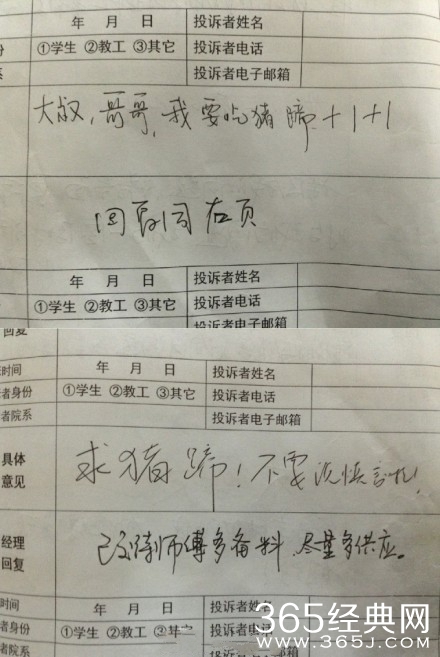 年 月 日 投诉者姓名
份 ①学生 ②教工 ③其它 投诉者电话
系 投诉者电子邮箱
大叔,哥哥,我要吃猪蹄+1+1
回复同右页
年 月 日 投诉者姓名
①学生 ②教工 ③其它 投诉者电话
投诉者电子邮箱
回复
时间 年 月 日 投诉者姓名
者身份 ①学生 ②教工 ③其它 投诉者电话
者院系 投诉者电子邮箱
具体
意见
求猪蹄!不要
经理
回复
师傅多备料,尽量多供应。
时间 年 月 日 投诉者姓名
者身份 ①学生 ②教工 投诉者电话
者院系
365经典网
WWW.365J.COM